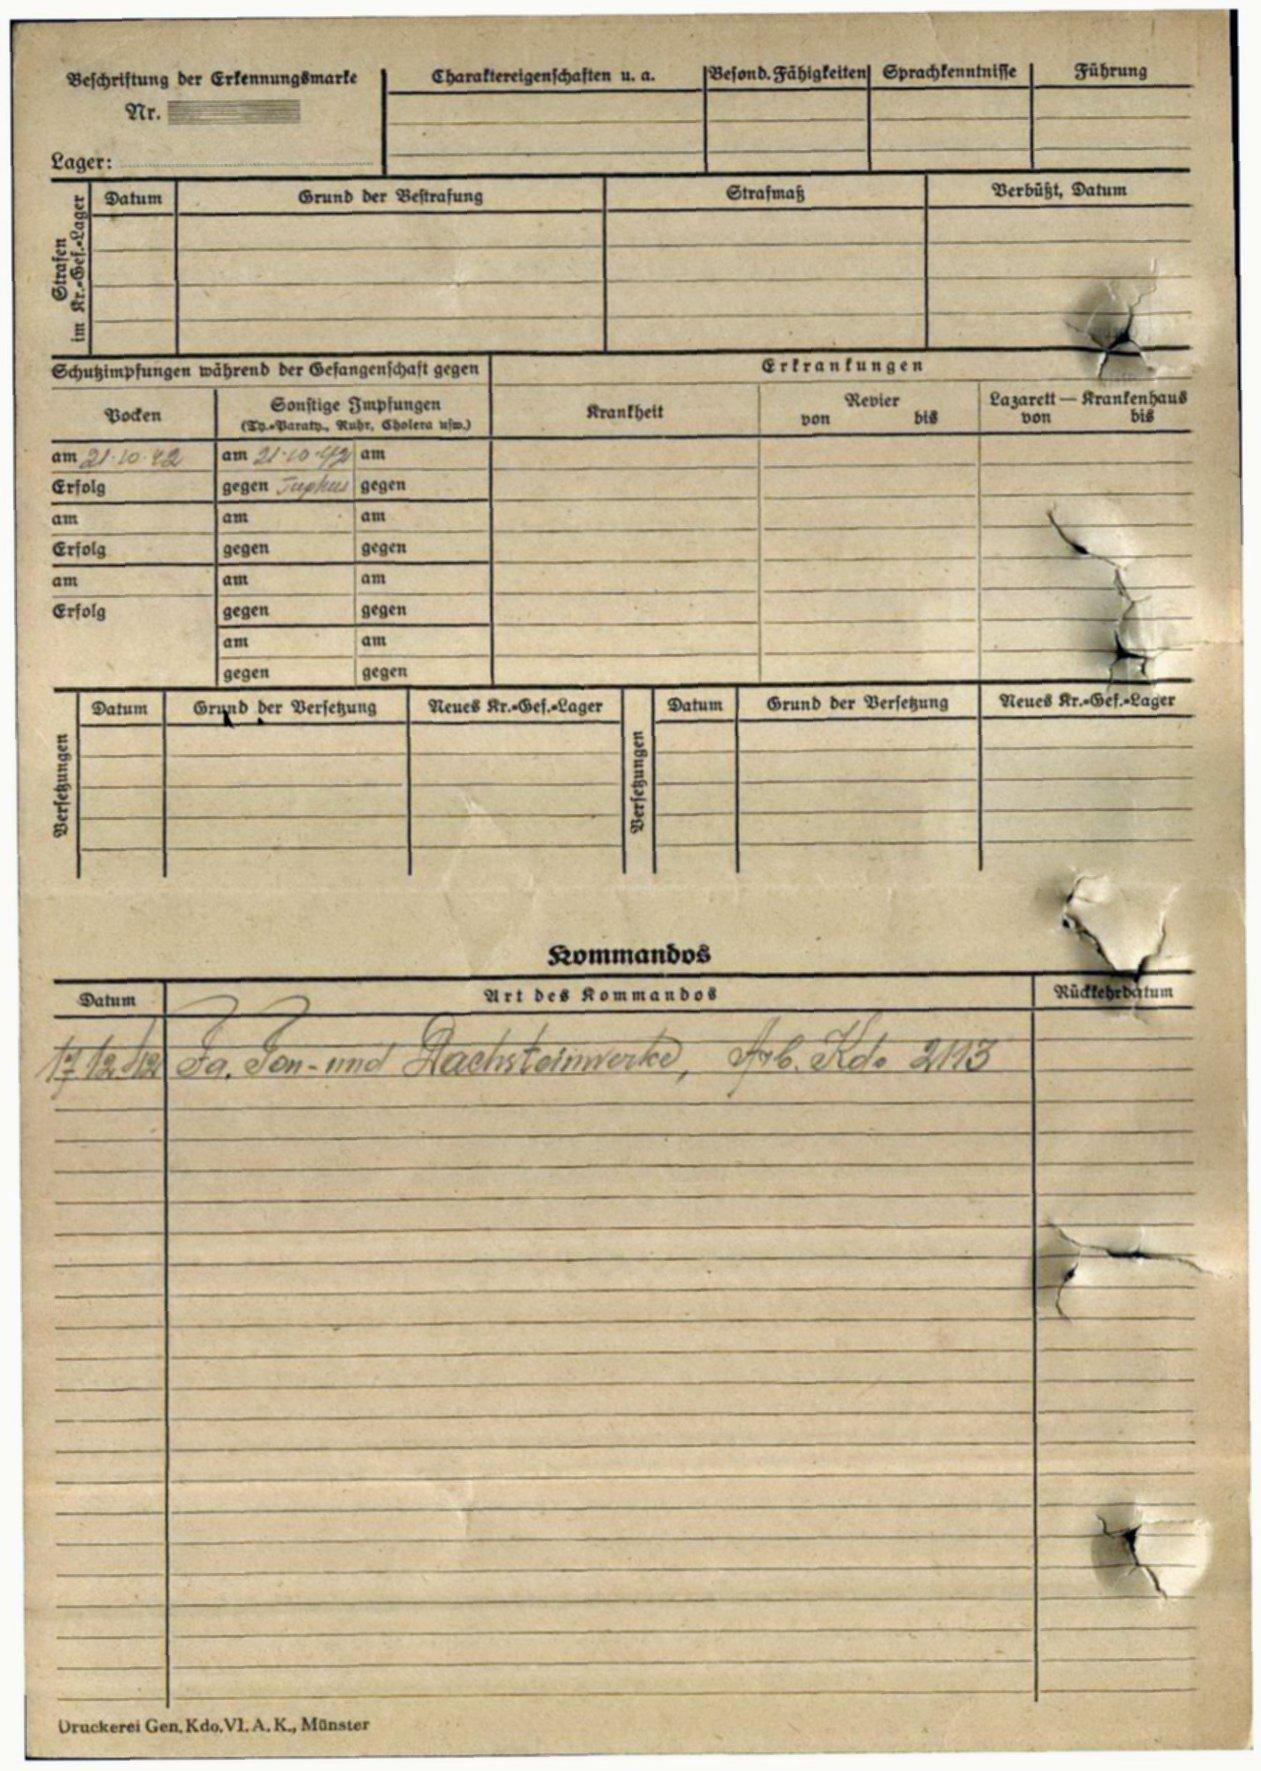 Beschriftung der Erkennungsmarke
Nr.
Lager:
Charaktereigenschaften u. a.
Besond. Fähigkeiten
Sprachkenntnisse
Führung
Strafen
im Kr.-Gef.-Lager
Datum
Grund der Bestrafung
Strafmaß
Verbüßt, Datum
Schutzimpfungen während der Gefangenschaft gegen
Erkrankungen
Pocken
Sonstige Impfungen
(Ty.-Paraty., Ruhr, Cholera usw.)
Krankheit
Revier
von bis
Lazarett — Krankenhaus
von bis
am 21.10.42 am 21.10.42 am
Erfolg gegen Typhus gegen
am am am
Erfolg gegen gegen
am am am
Erfolg gegen gegen
am am
gegen gegen
Versetzungen
Datum Grund der Versetzung Neues Kr.-Gef.-Lager
Versetzungen
Datum Grund der Versetzung Neues Kr.-Gef.-Lager
Kommandos
Datum Art des Kommandos Rückkehrdatum
17.12.42 Fa. Ton- und Dachsteinwerke, Arb. Kdo 2113
Druckerei Gen. Kdo. VI. A. K., Münster